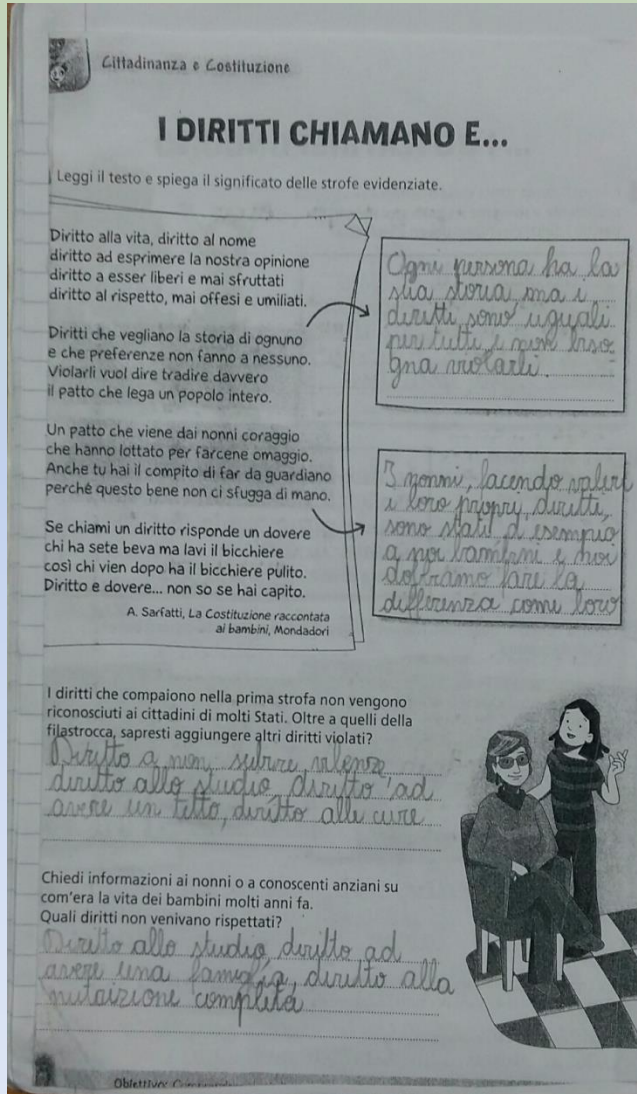 Cittadinanza e Costituzione
I DIRITTI CHIAMANO E...
Leggi il testo e spiega il significato delle strofe evidenziate.
Diritto alla vita, diritto al nome
diritto ad esprimere la nostra opinione
diritto a esser liberi e mai sfruttati
diritto al rispetto, mai offesi e umiliati.
Diritti che vegliano la storia di ognuno
e che preferenze non fanno a nessuno.
Violarli vuol dire tradire davvero
il patto che lega un popolo intero.
Un patto che viene dai nonni coraggio
che hanno lottato per farcene omaggio.
Anche tu hai il compito di far da guardiano
perché questo bene non ci sfugga di mano.
Se chiami un diritto risponde un dovere
chi ha sete beva ma lavi il bicchiere
così chi vien dopo ha il bicchiere pulito.
Diritto e dovere... non so se hai capito.
A. Sarfatti, La Costituzione raccontata
ai bambini, Mondadori
Ogni persona ha la
sua storia, ma i
diritti sono uguali
per tutti e non biso
gna violarli.
I nonni, facendo valere
i loro propri diritti,
sono stati d'esempio
a noi bambini e noi
dobbiamo fare la
differenza come loro
I diritti che compaiono nella prima strofa non vengono
riconosciuti ai cittadini di molti Stati. Oltre a quelli della
filastrocca, sapresti aggiungere altri diritti violati?
Diritto a non subire violenze
diritto allo studio, diritto ad
avere un tetto, diritto alle cure
Chiedi informazioni ai nonni o a conoscenti anziani su
com'era la vita dei bambini molti anni fa.
Quali diritti non venivano rispettati?
Diritto allo studio, diritto ad
avere una famiglia, diritto alla
completa
Obiettivo: